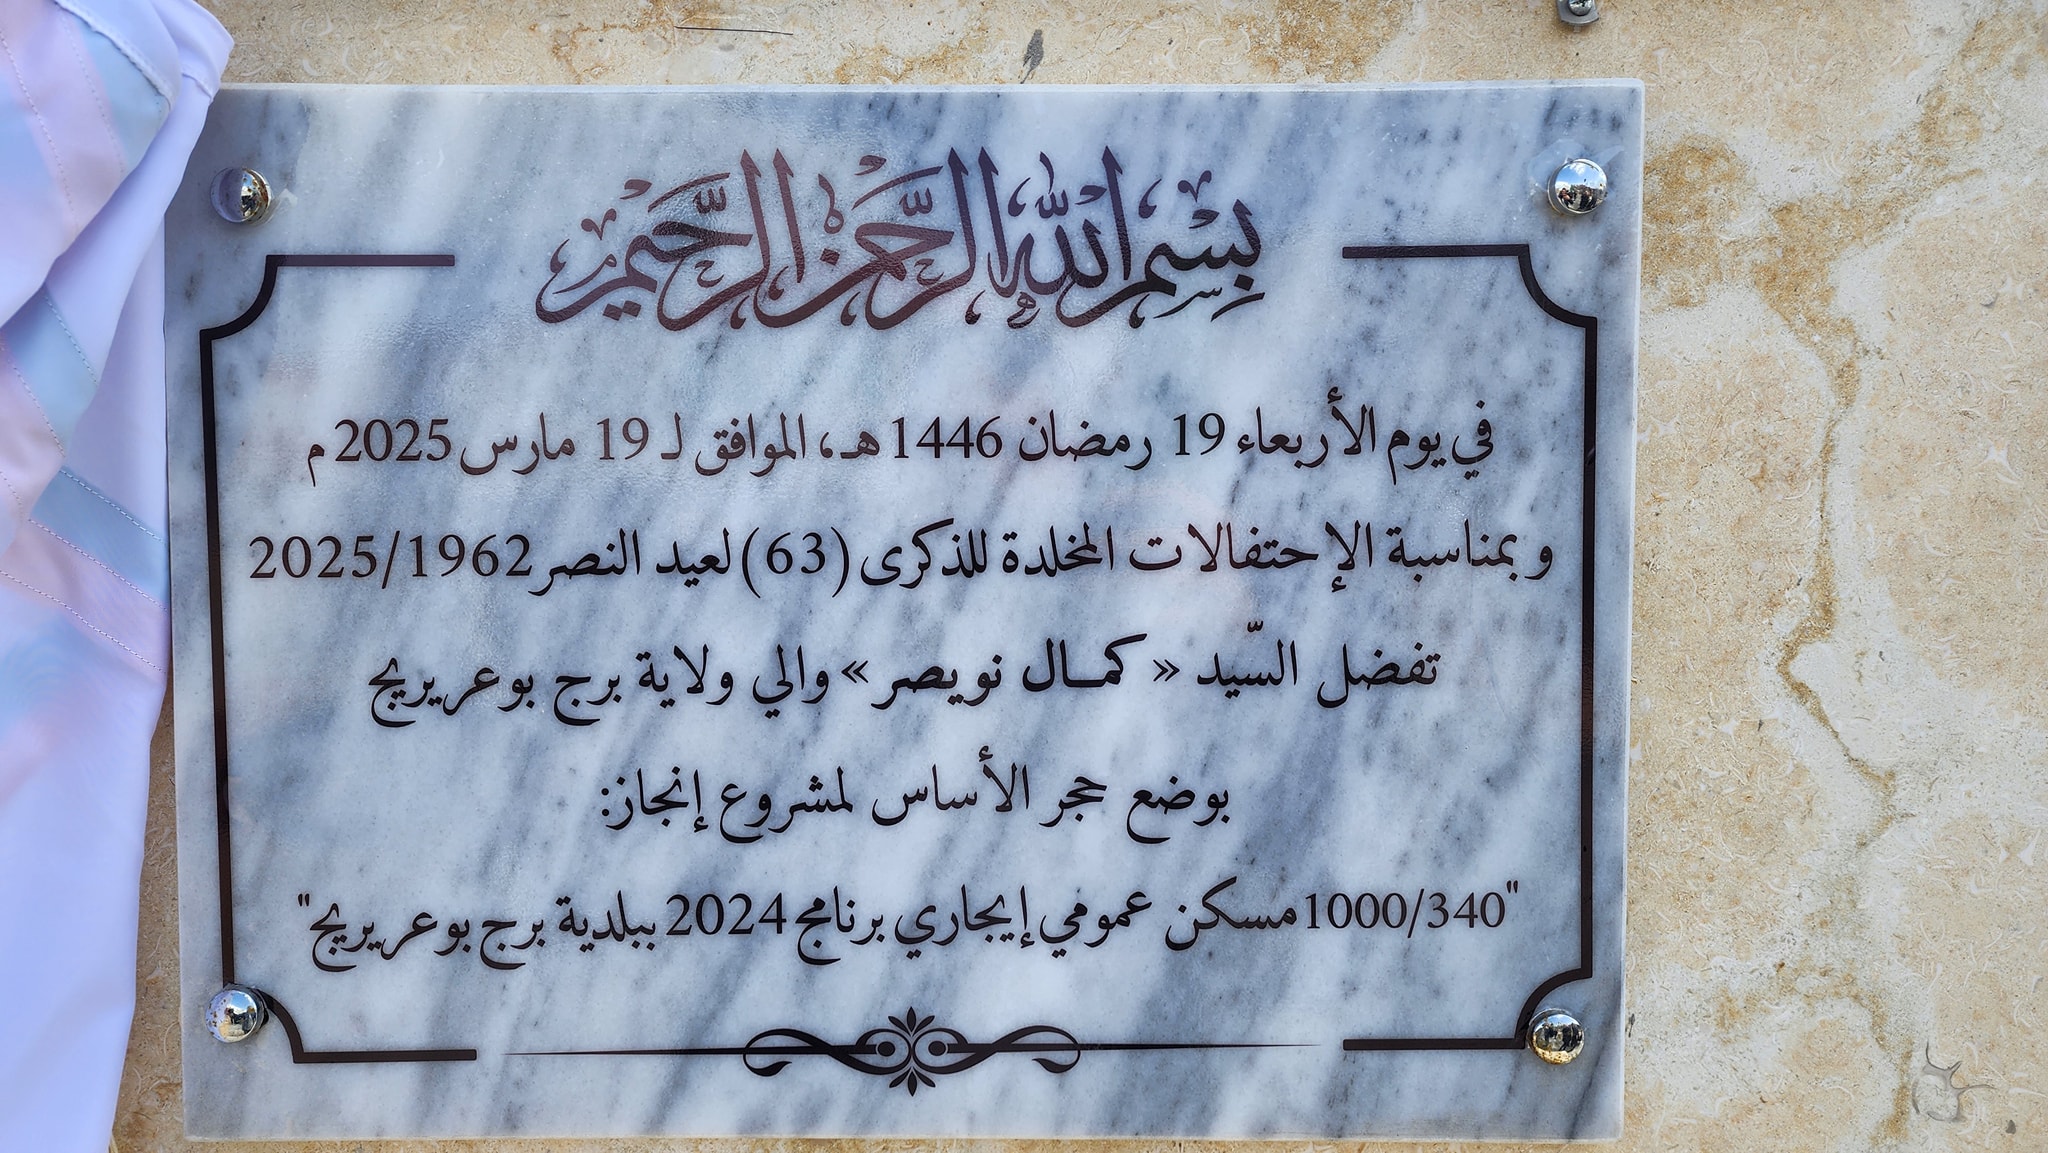 بِسْمِ اللهِ الرَّحْمَنِ الرَّحِيمِ
في يوم الأربعاء 19 رمضان 1446 هـ، الموافق لـ 19 مارس 2025 م
وبمناسبة الإحتفالات المخلدة للذكرى (63) لعيد النصر 2025/1962
تفضل السّيد « كمـال نويصر » والي ولاية برج بوعريريج
بوضع حجر الأساس لمشروع إنجاز:
"1000/340 مسكن عمومي إيجاري برنامج 2024 ببلدية برج بوعريريج"